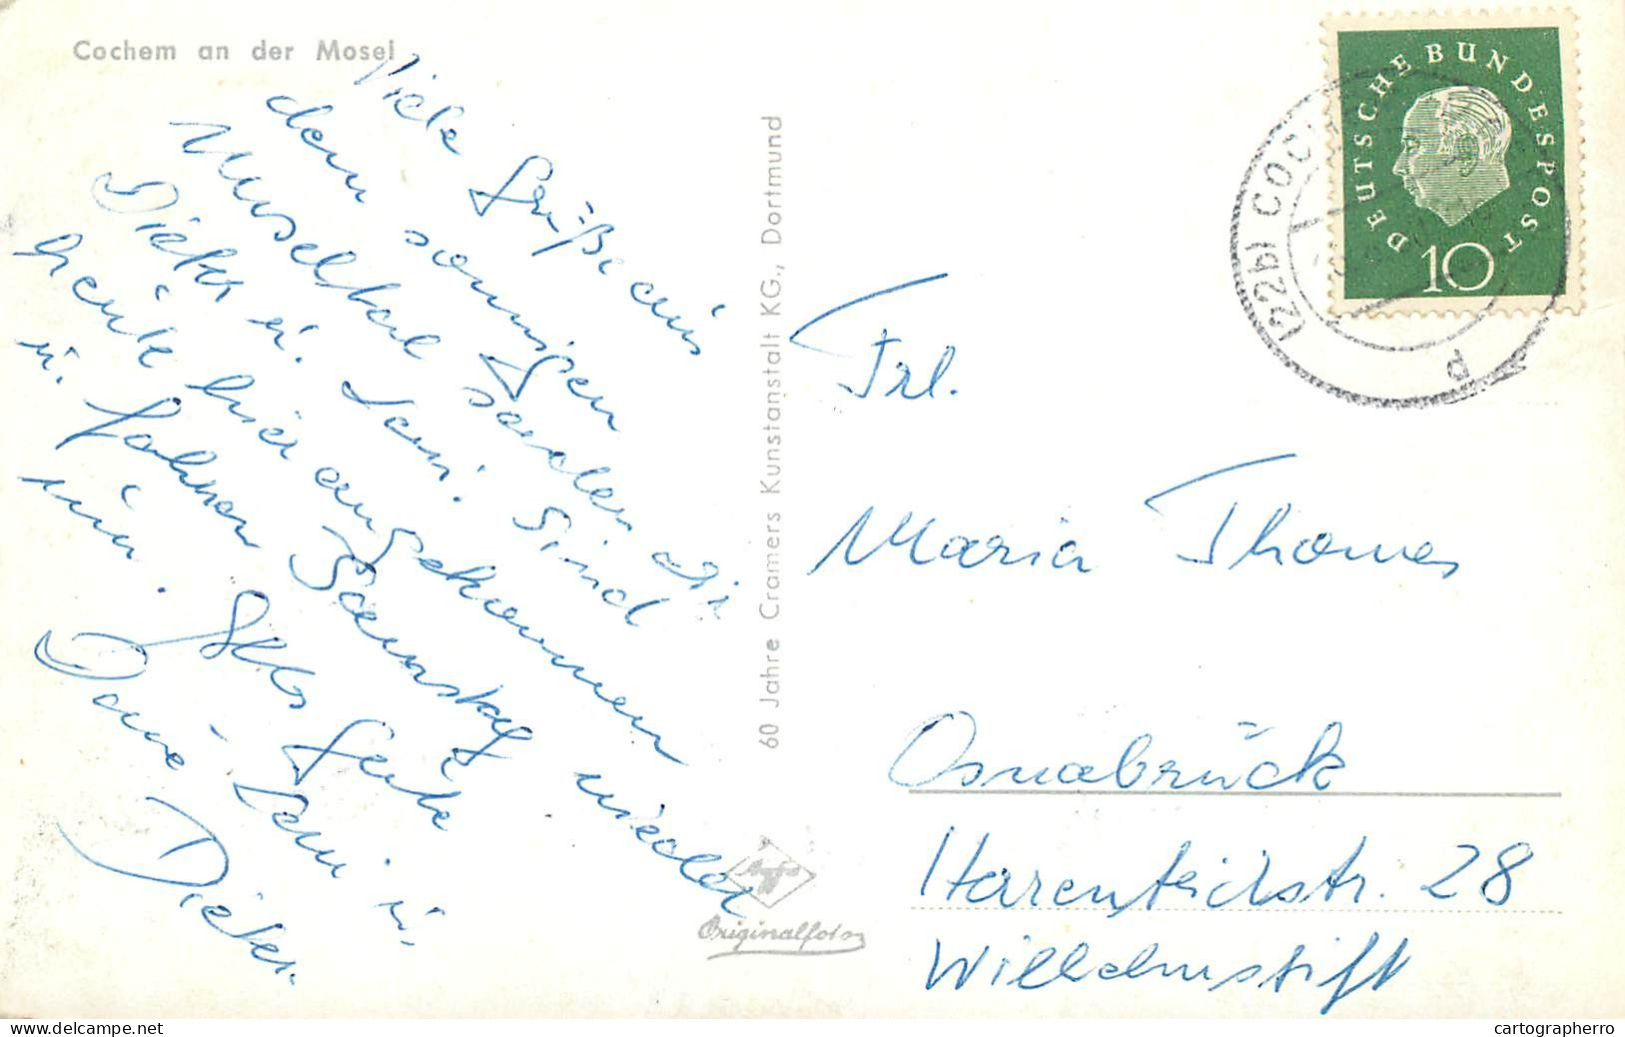 Cochem an der Mosel
Viele Grüße aus
dem sonnigen
Moseltal senden dir
Dieter u. Leni. Sind
heute hier angekommen
u. fahren Samstag wieder
Alles Gute
Leni u.
Dieter.
60 Jahre Cramers Kunstanstalt KG., Dortmund
Agfa
Originalfoto
DEUTSCHE BUNDESPOST
10
(22b) COCHEM
d
Frl.
Maria Thomes
Osnabrück
Harenteichstr. 28
Wilhelmstift
cartographerro
www.delcampe.net